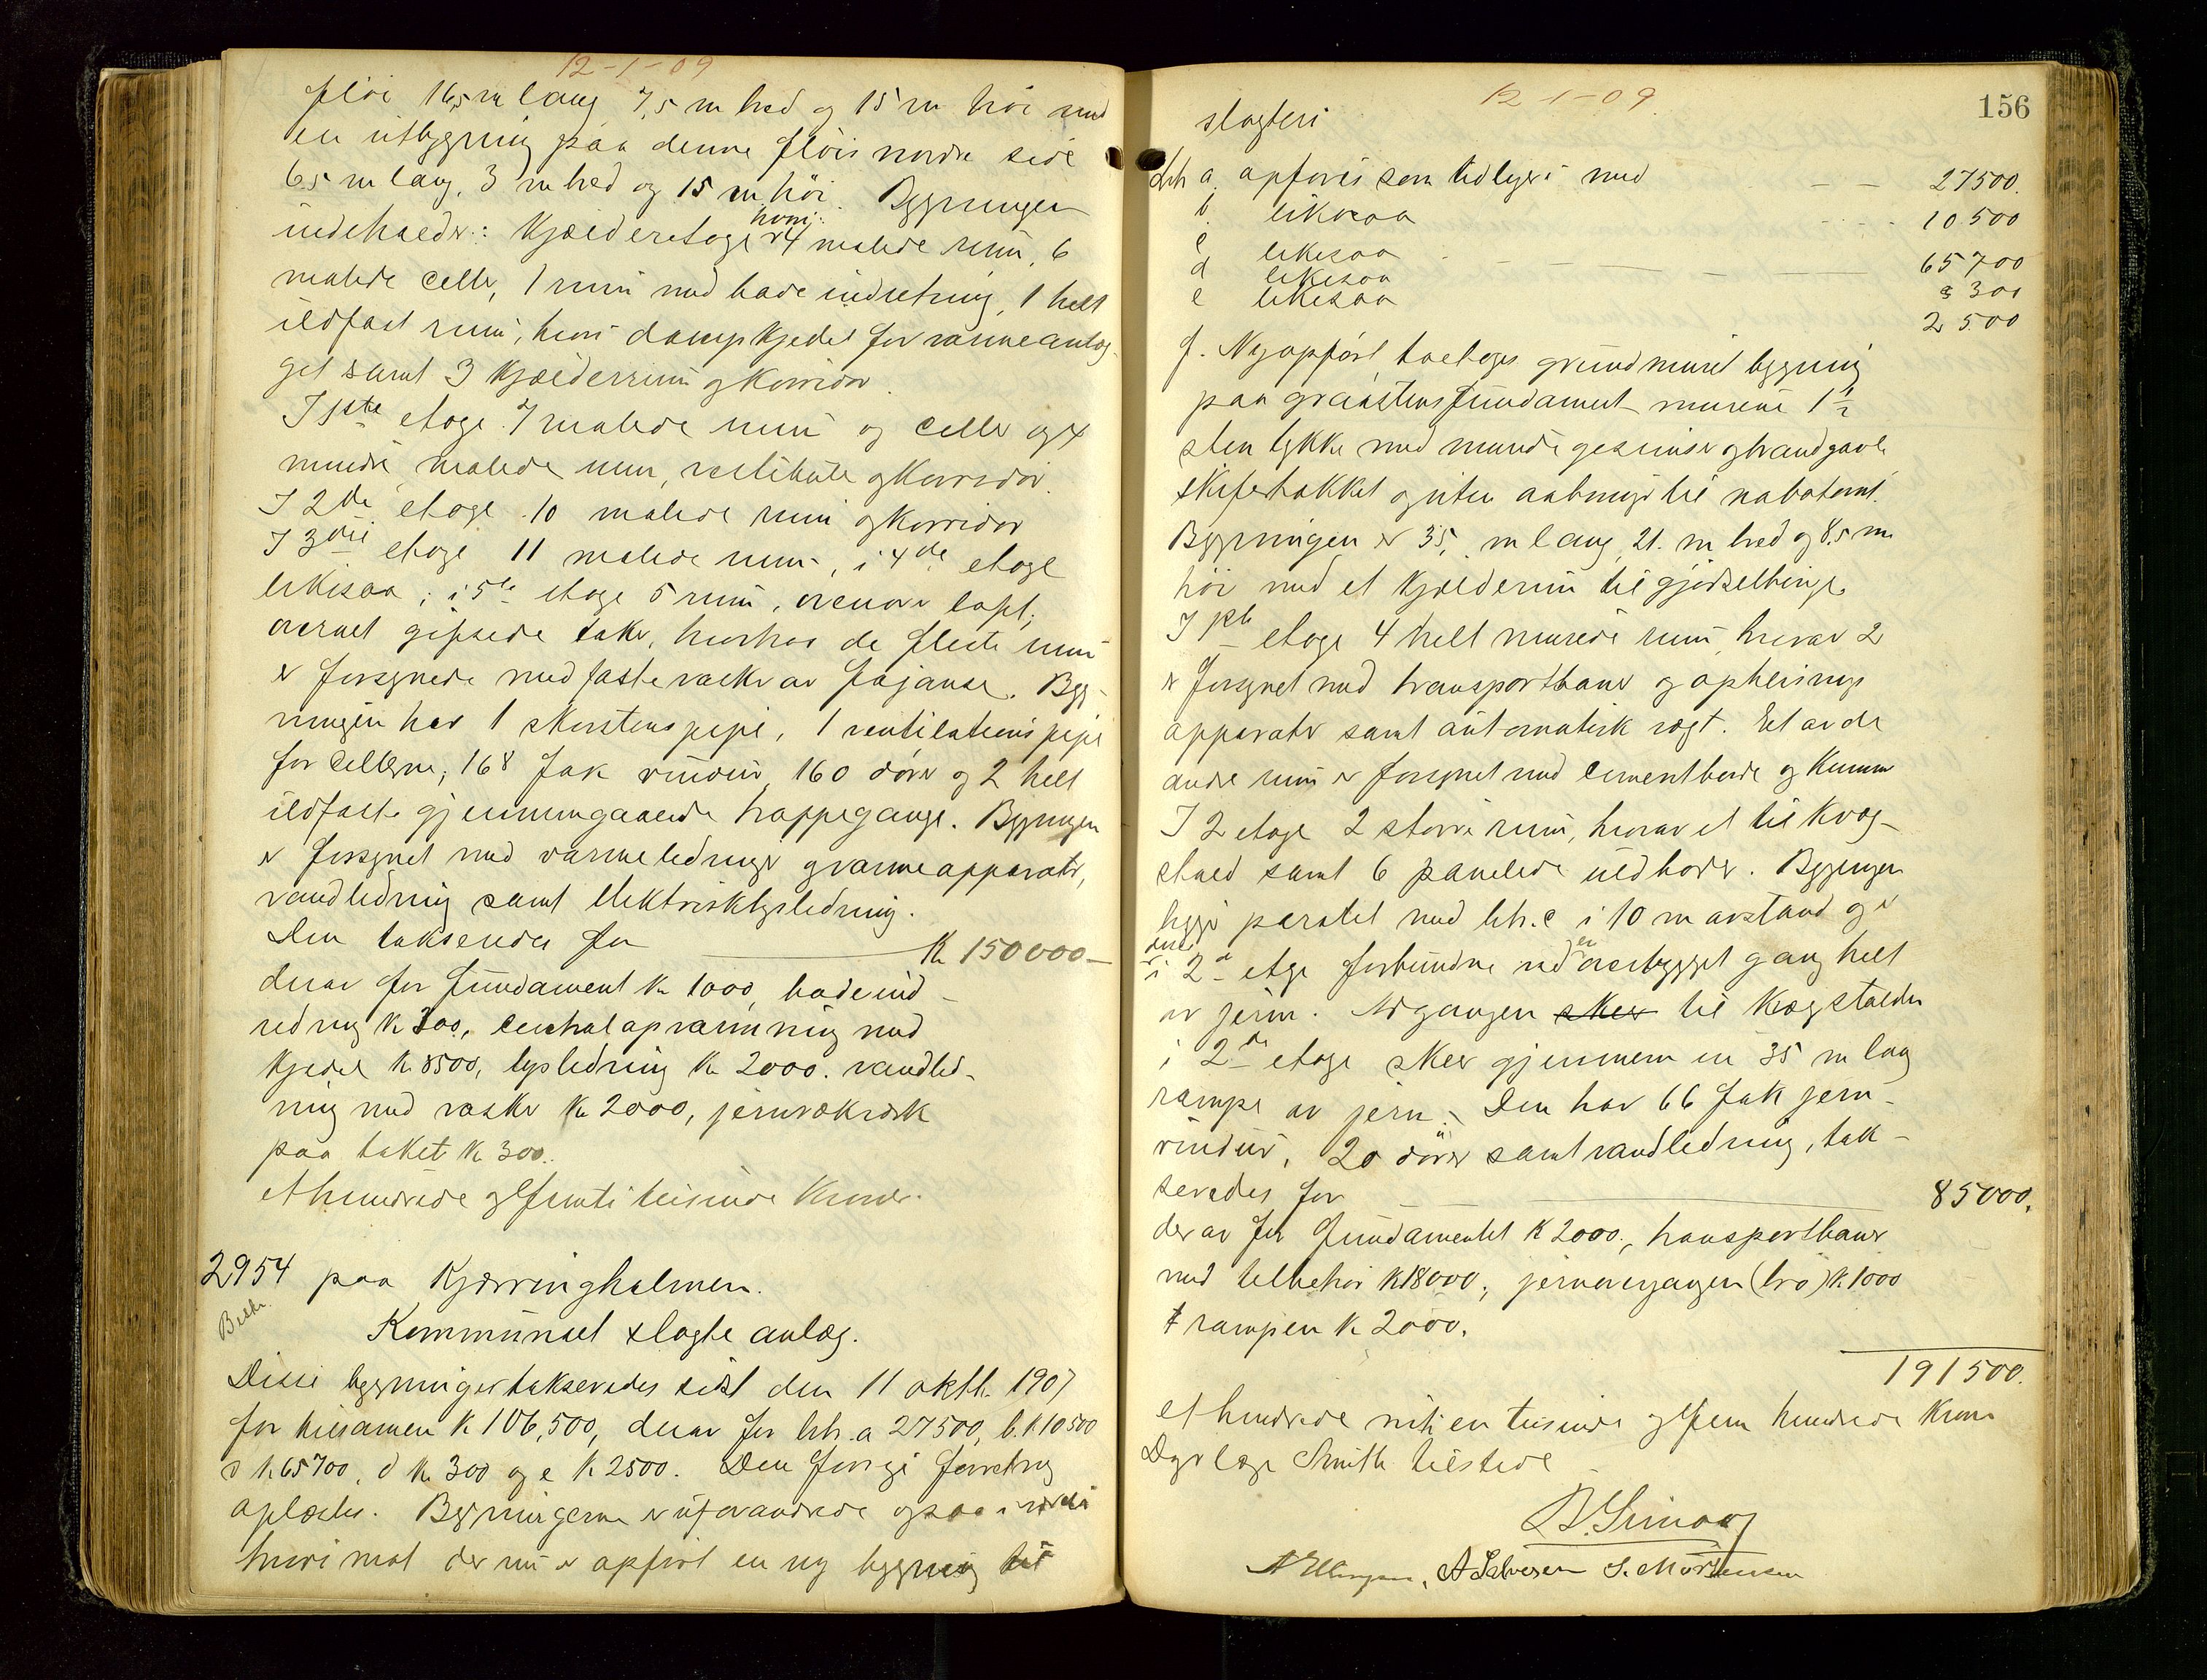 12-1-09
fløi 16,5 m lang 7,5 m bred og 15 m høi med
en utbygning paa denne fløis nordre side
6,5 m lang, 3 m bred og 15 m høi. Bygningen
indeholder: Kjælderetage hvori 4 malede rum, 6
malede celler, 1 rum med badeindretning, 1 helt
ildfast rum, hvori dampkjedel for varmeanlæg-
get samt 3 kjælderrum og korridor.
I 1ste etage 7 malede rum og celler og 4
mindre malede rum, vestibule og korridor.
I 2den etage 10 malede rum og korridor
I 3die etage 11 malede rum, i 4de etage
likesaa, i 5te etage 5 rum, ovenover loft;
overalt gipsede taker, hvorhos de fleste rum
er forsynede med faste vasker av fajanse. Byg-
ningen har 1 skorstenspipe, 1 ventilationspipe
for cellerne, 168 fak vinduer, 160 dører og 2 helt
ildfaste gjennemgaaende trappegange. Bygningen
er forsynet med varmeledninger og varmeapparater,
vandledning samt elektrisk lysledning.
Den takseredes for K 150000-
derav for fundament K 1000, badeind-
redning K 300, centralopvarmning med
kjedel K 8500, lysledning K 2000. vandled-
ning med vasker K 2000, jernrækverk
paa taket K 300.
et hundrede og femti tusinde Kroner.
2954 paa Kjærringholmen.
Kommunal slagteanlæg.
Disse bygninger takseredes sidst den 11 oktbr 1907
for tilsammen K 106,500, derav for litr. a 27500, b. K 10500
c K 65700, d K 300 og e K 2500. Den forrige forretning
oplæstes. Bygningerne er uforandrede ogsaa i værdi
hvorimot der nu er opført en ny bygning til
12-1-09
156
slagteri
Litr a. opføres som tidligere med 27500.
b. likesaa 10500
c likesaa 65700
d likesaa 300
e likesaa 2500
f. Nyopført toetages grundmuret bygning
paa graastensfundament murene 1 1/2
sten tykke med murede gesimser og brandgavle
skifertakket og uten aabninger til nabotomt.
Bygningen er 35, m lang, 21. m bred og 8,5 m
høi med et kjælderrum til gjødselbinge
I 1ste etage 4 helt murede rum, hvorav 2
er forsynet med transportbaner og opheisnings
apparater samt automatisk vægt. Et av de
andre rum er forsynet med cementborde og kummer
I 2 etage 2 større rum, hvorav et til kvæg-
stald samt 6 panelede uldboder. Bygningen
ligger paralel med litr. c i 10 m avstand og er
i 2den etage forbundne ved en overbygget gang helt
av jern. Adgangen sker til kvægstalden
i 2den etage sker gjennem en 35 m lang
rampe av jern. Den har 66 fak jern-
vinduer, 20 dører samt vandledning, tak-
seredes for 85000.
derav for fundamentet K 2000., transportbaner
med tilbehør K 18000, jernovergangen (bro) K 1000
rampen K 2000.
191500.
et hundrede nitien tusinde og fem hundrede Kroner
Dyrlæge Smith tilstede
A Ellingsen, A Salvesen S. Mortensen